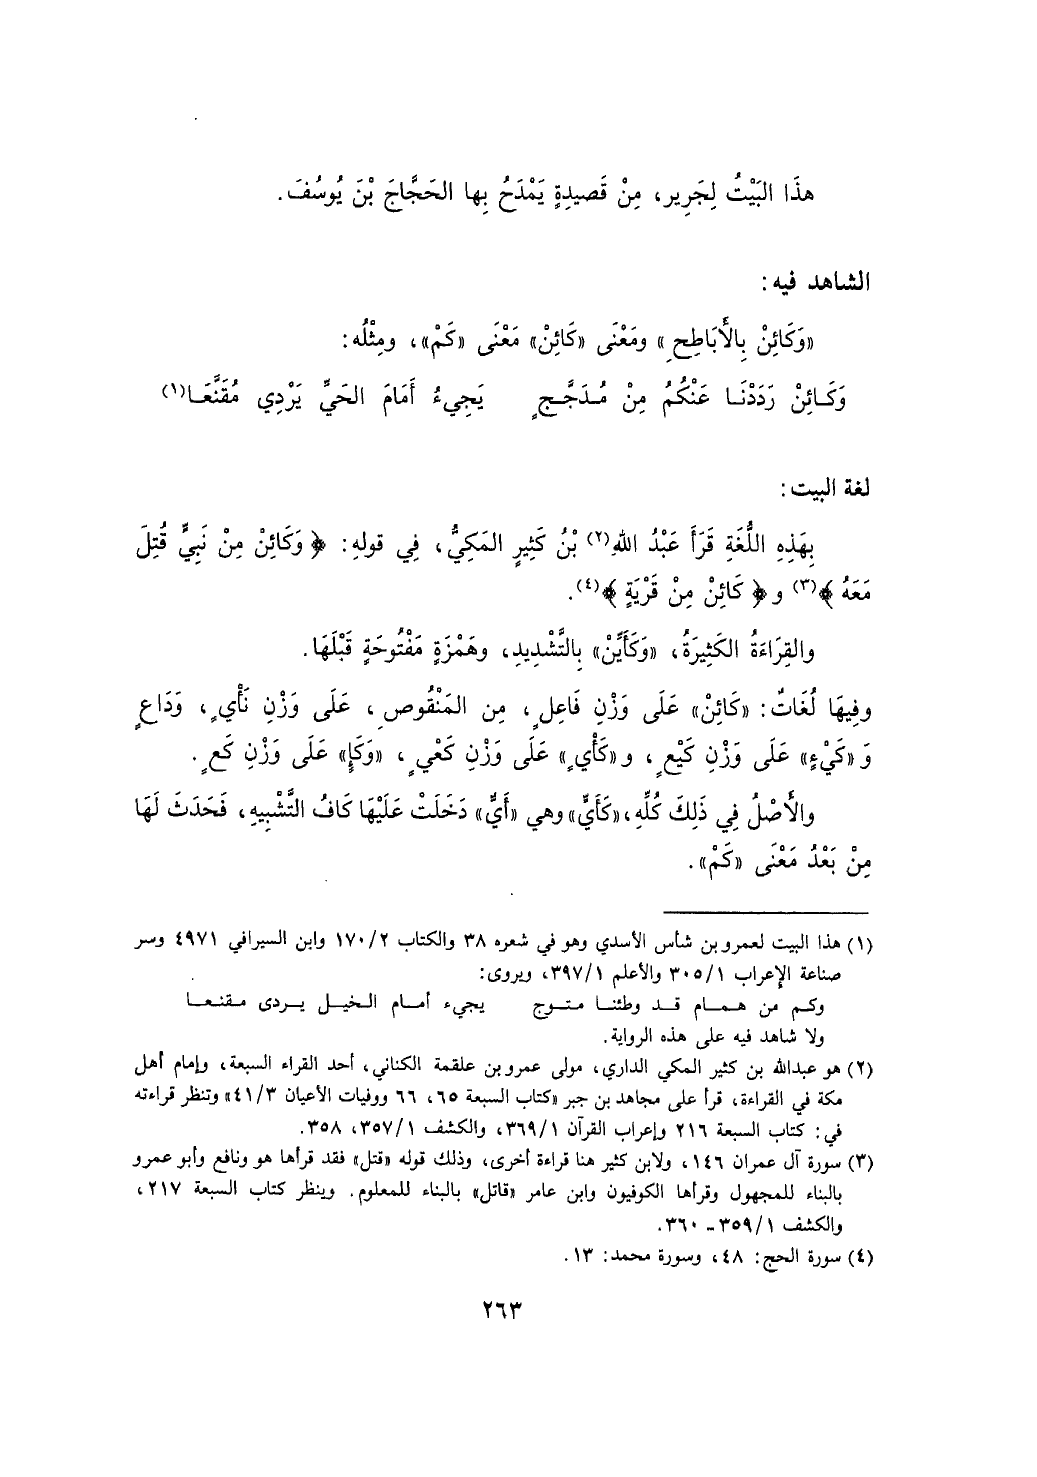 هذَا البَيْتُ لِجَرِير، مِنْ قَصيدِةٍ يَمْدَحُ بِها الحَجَّاجَ بْنَ يُوسُفَ.
الشاهد فيه:
«وَكَائِنْ بِالأَبَاطِحِ» ومَعْنَى «كَائِنْ» مَعْنَى «كَمْ»، ومِثْلُه:
وَكَـائِنْ رَدَدْنَـا عَنْكُمُ مِنْ مُـدَجَّـجٍ يَجِيءُ أَمَامَ الحَيِّ يَرْدِي مُقَنَّعَـا(١)
لغة البيت:
بِهَذِهِ اللُّغَةِ قَرَأَ عَبْدُ اللهِ(٢) بْنُ كَثِيرٍ المَكِيُّ، فِي قولهِ: ﴿ وَكَائِنْ مِنْ نَبِيٍّ قُتِلَ
مَعَهُ ﴾(٣) و﴿ كَائِنْ مِنْ قَرْيَةٍ ﴾(٤).
والقِرَاءَةُ الكَثِيرَةُ، «وَكَأَيِّنْ» بِالتَّشْدِيدِ، وهَمْزَةٍ مَفْتُوحَةٍ قَبْلَهَا.
وفِيهَا لُغَاتٌ: «كَائِنْ» عَلَى وَزْنِ فَاعِلٍ، مِن المَنْقُوصِ، عَلَى وَزْنِ نَأْيٍ، وَدَاعٍ
وَ «كَيْءٍ» عَلَى وَزْنِ كَيْعٍ، و«كَأْيٍ» عَلَى وَزْنِ كَعْيٍ، «وَكَإٍ» عَلَى وَزْنِ كَعٍ.
والأَصْلُ فِي ذَلِكَ كُلِّهِ، «كَأَيٍّ» وهي «أَيٍّ» دَخَلَتْ عَلَيْهَا كَافُ التَّشْبِيهِ، فَحَدَثَ لَهَا
مِنْ بَعْدُ مَعْنَى «كَمْ».
(١) هذا البيت لعمرو بن شأس الأسدي وهو في شعره ٣٨ والكتاب ١٧٠/٢ وابن السيرافي ٤٩٧١ وسر
صناعة الإعراب ٣٠٥/١ والأعلم ٣٩٧/١، ويروى:
وكـم من همـام قـد وطئنـا متـوج يجيء أمـام الخيـل يـردى مـقنـعـا
ولا شاهد فيه على هذه الرواية.
(٢) هو عبدالله بن كثير المكي الداري، مولى عمرو بن علقمة الكناني، أحد القراء السبعة، وإمام أهل
مكة في القراءة، قرأ على مجاهد بن جبر «كتاب السبعة ٦٥، ٦٦ ووفيات الأعيان ٤١/٣» وتنظر قراءته
في: كتاب السبعة ٢١٦ وإعراب القرآن ٣٦٩/١، والكشف ٣٥٧/١، ٣٥٨.
(٣) سورة آل عمران ١٤٦، ولابن كثير هنا قراءة أخرى، وذلك قوله «قتل» فقد قرأها هو ونافع وأبو عمرو
بالبناء للمجهول وقرأها الكوفيون وابن عامر «قاتل» بالبناء للمعلوم. وينظر كتاب السبعة ٢١٧،
والكشف ٣٥٩/١ ـ ٣٦٠.
(٤) سورة الحج: ٤٨، وسورة محمد: ١٣.
٢٦٣